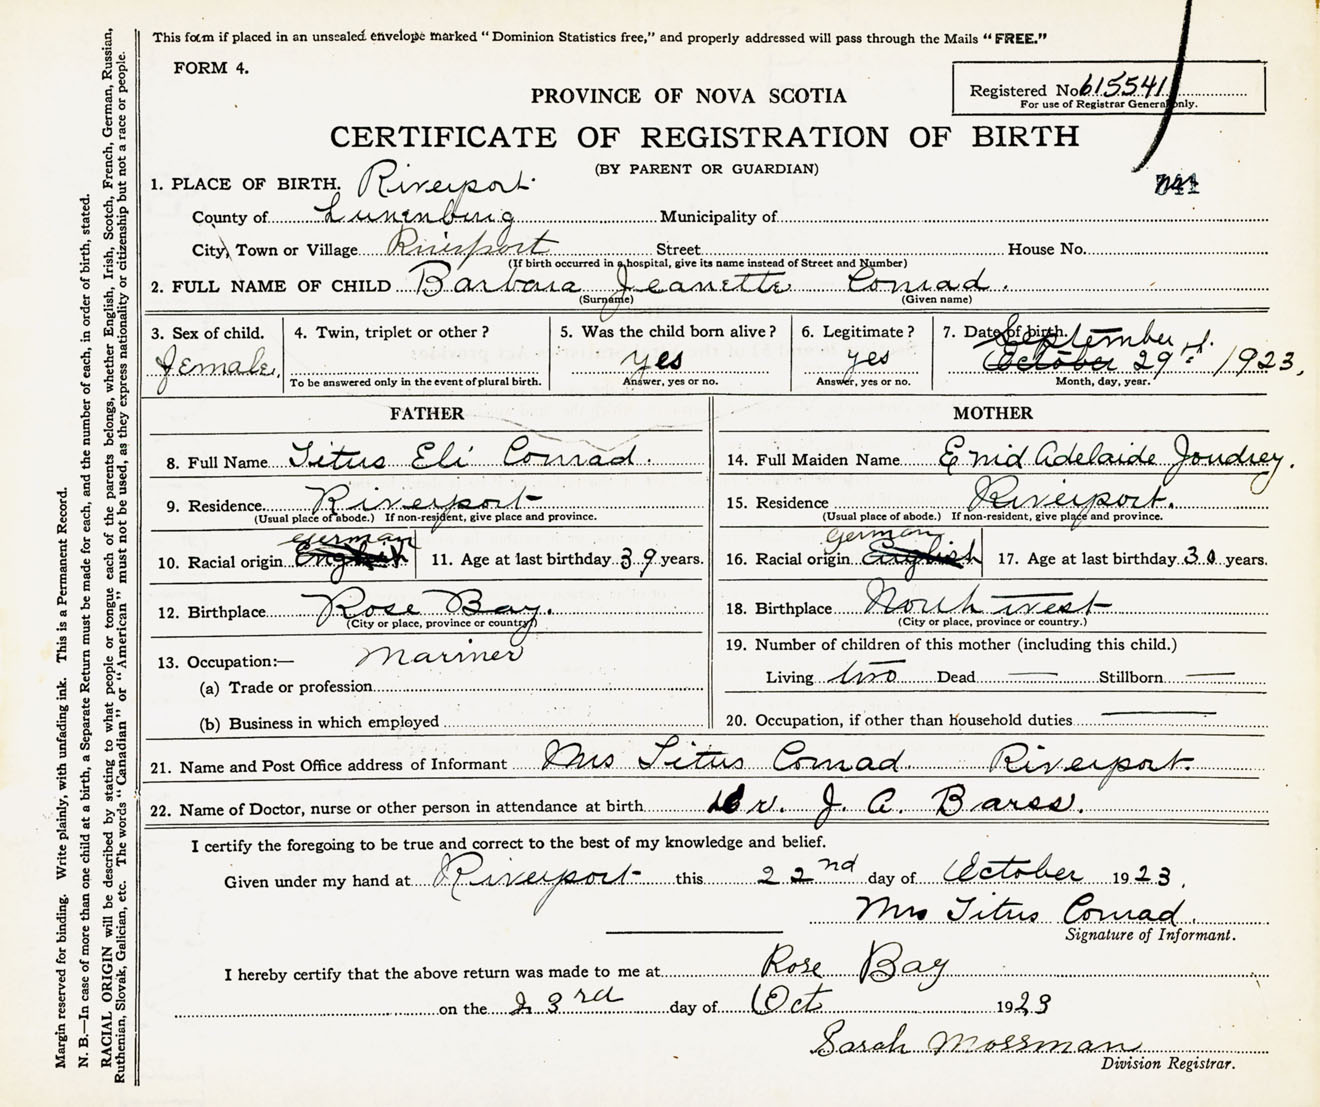 This form if placed in an unsealed envelope marked "Dominion Statistics free," and properly addressed will pass through the Mails "FREE."
FORM 4.
Registered No. 615541
For use of Registrar General only.
PROVINCE OF NOVA SCOTIA
CERTIFICATE OF REGISTRATION OF BIRTH
(BY PARENT OR GUARDIAN)
1. PLACE OF BIRTH. Riverport
County of Lunenburg Municipality of
City, Town or Village Riverport Street House No.
(If birth occurred in a hospital, give its name instead of Street and Number)
2. FULL NAME OF CHILD Barbara Jeanette Conrad.
(Surname) (Given name)
3. Sex of child. 4. Twin, triplet or other? 5. Was the child born alive? 6. Legitimate? 7. Date of birth.
September
Female. yes yes October 29 1923,
To be answered only in the event of plural birth. Answer, yes or no. Answer, yes or no. Month, day, year.
FATHER
8. Full Name Titus Eli Conrad.
9. Residence Riverport
(Usual place of abode.) If non-resident, give place and province.
German
10. Racial origin English 11. Age at last birthday 39 years.
12. Birthplace Rose Bay.
(City or place, province or country)
13. Occupation:— Mariner
(a) Trade or profession
(b) Business in which employed
MOTHER
14. Full Maiden Name Enid Adelaide Joudrey.
15. Residence Riverport.
(Usual place of abode.) If non-resident, give place and province.
German
16. Racial origin English 17. Age at last birthday 30 years.
18. Birthplace North West
(City or place, province or country.)
19. Number of children of this mother (including this child.)
Living two Dead — Stillborn —
20. Occupation, if other than household duties —
21. Name and Post Office address of Informant Mrs Titus Conrad Riverport.
22. Name of Doctor, nurse or other person in attendance at birth Dr. J. A. Barss.
I certify the foregoing to be true and correct to the best of my knowledge and belief.
Given under my hand at Riverport this 22nd day of October 1923,
Mrs Titus Conrad.
Signature of Informant.
I hereby certify that the above return was made to me at Rose Bay
on the 23rd day of Oct 1923
Sarah Mossman
Division Registrar.
Margin reserved for binding. Write plainly, with unfading ink. This is Permanent Record.
N. B.—In case of more than one child at a birth, a Separate Return must be made for each, and the number of each, in order of birth, stated.
RACIAL ORIGIN will be described by stating to what people or tongue each of the parents belongs, whether English, Irish, Scotch, French, German, Russian,
Ruthenian, Slovak, Galician, etc. The words "Canadian" or "American" must not be used, as they express nationality or citizenship but not a race or people.